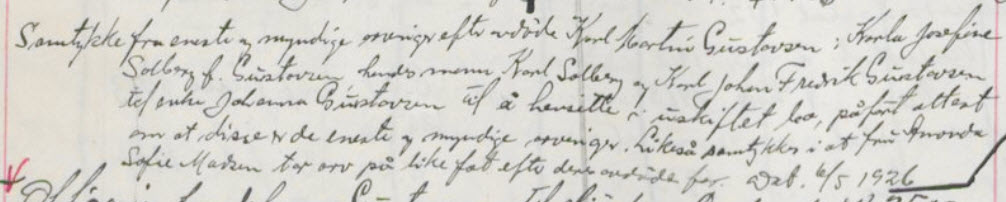 Samtykke fra eneste og myndige arvinger efter avdöde Karl Martin Gustavsen ; Karla Josefine
Solberg f. Gustavsen hendes mann Karl Solberg og Karl Johan Fredrik Gustavsen
til enke Johanna Gustavsen til å hensitte i uskiftet bo, påfört attest
om at disse er de eneste og myndige arvinger. Likeså samtykkes i at fru
Sofie Madsen tar arv på like fot efter deres avdöde far. Dat. 6/5 1926